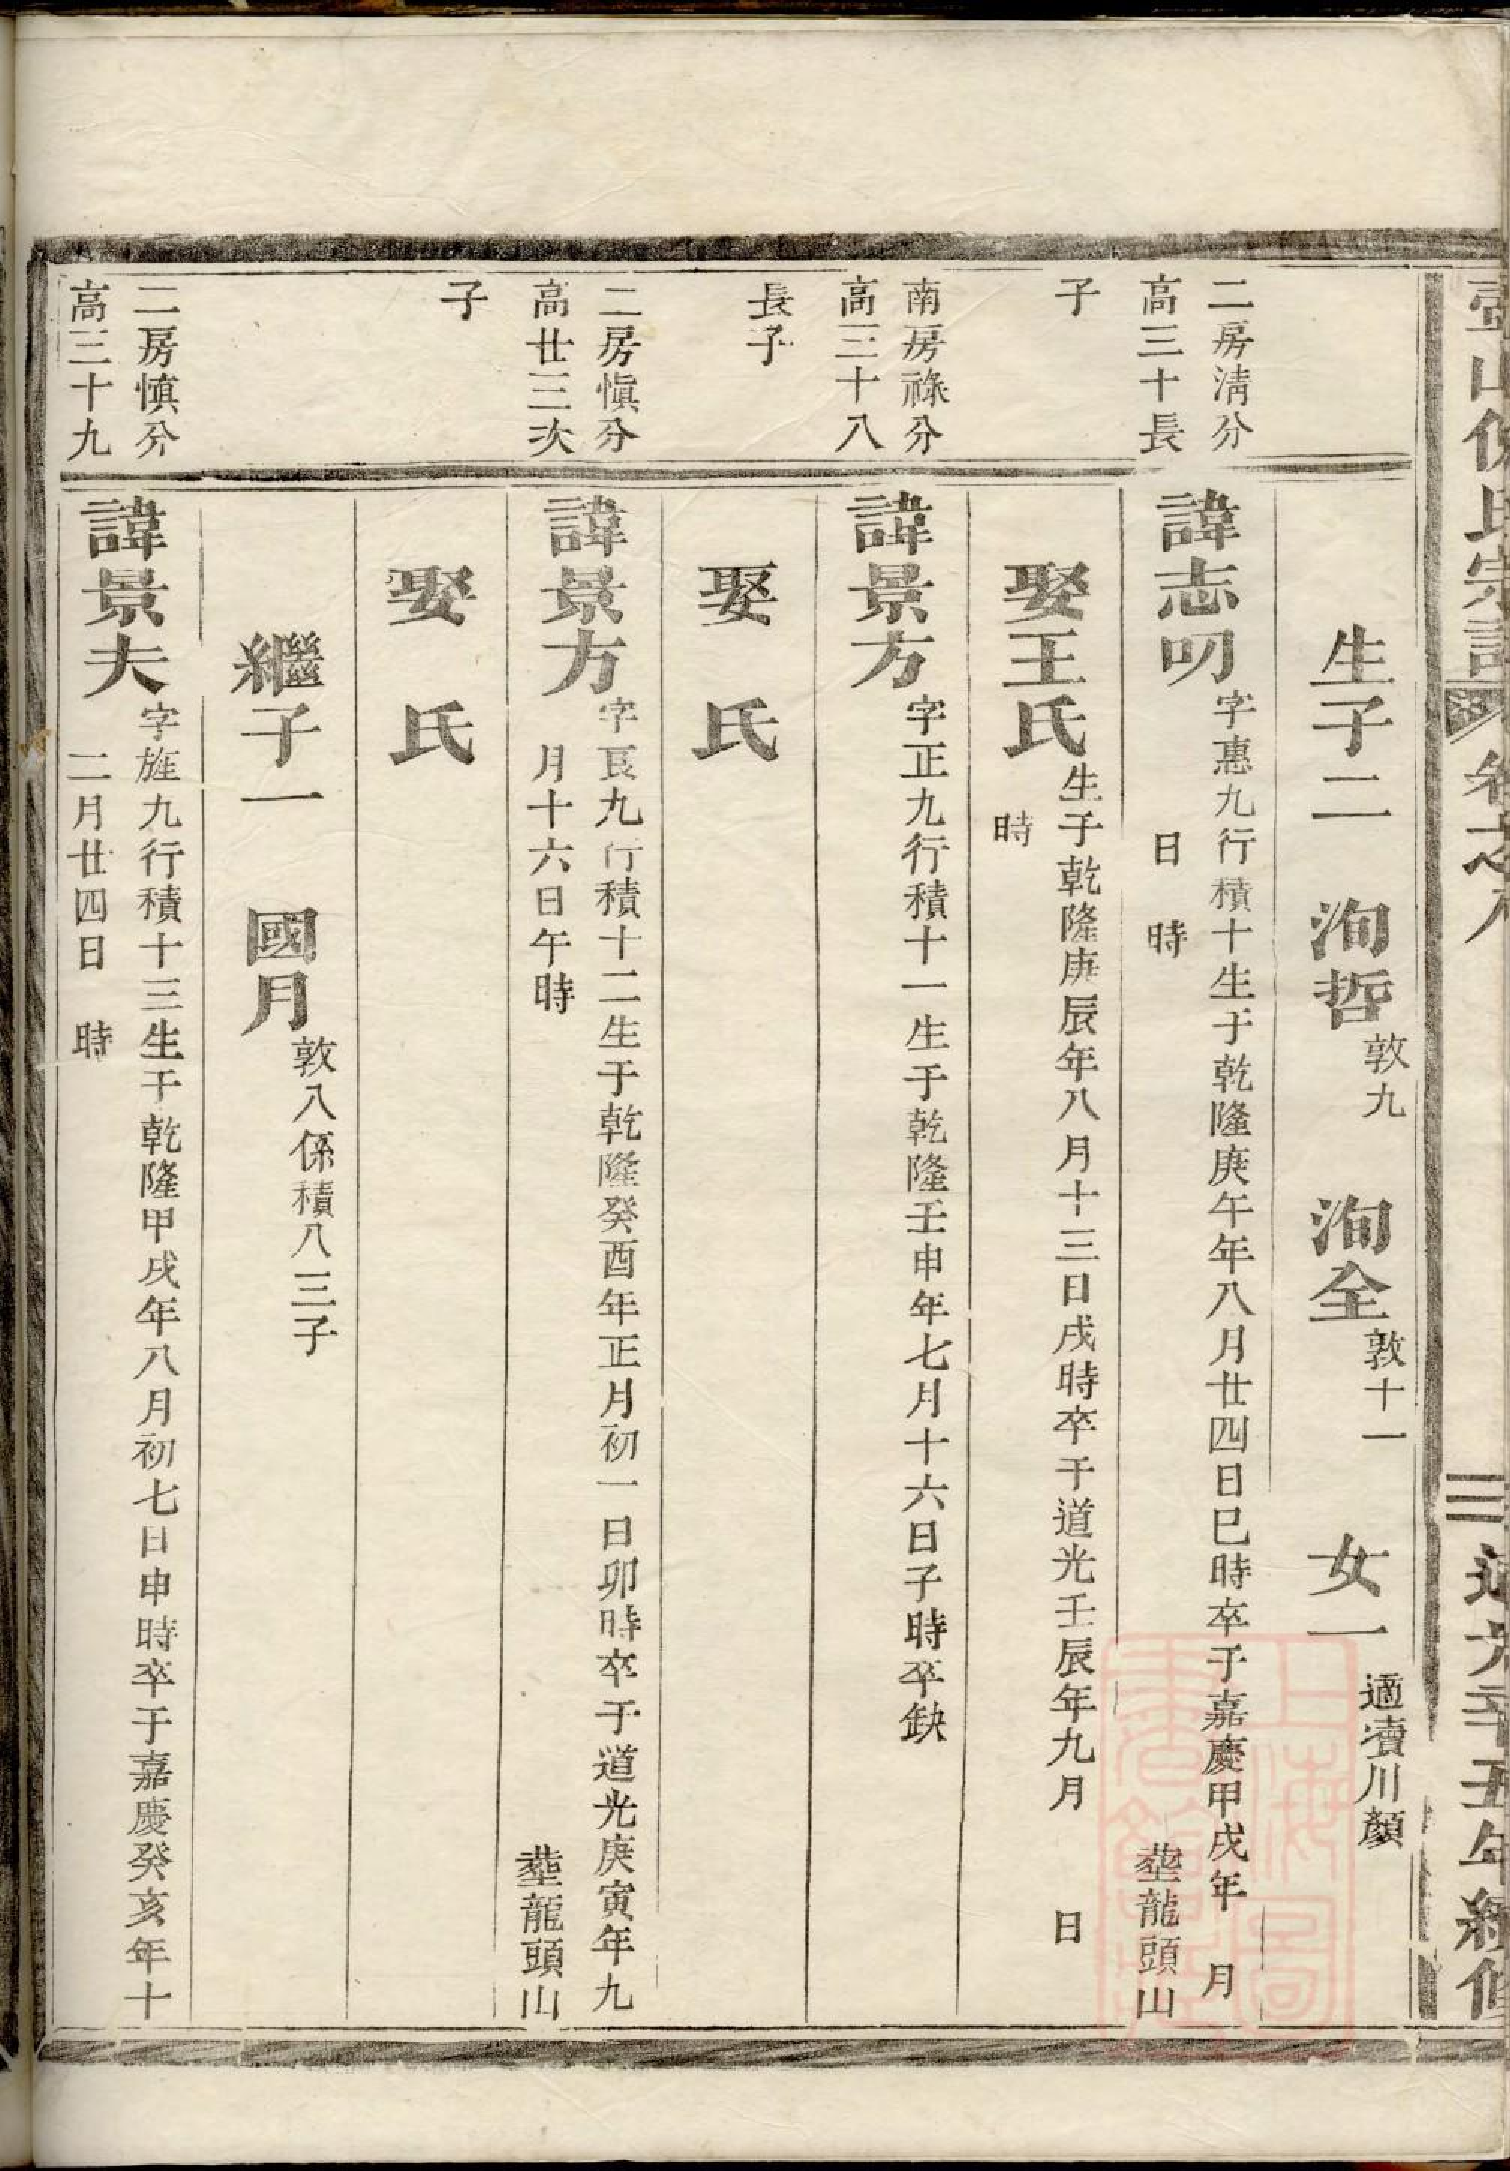 卷之八
三
道光十五年續修
生子二 洵哲敦九 洵全敦十一 女一適賣川顏
二房淸分
高三十長
子
諱志叨
字惠九行積十生于乾隆庚午年八月廿四日巳時卒于嘉慶甲戌年 月
日 時 塟龍頭山
娶王氏
生于乾隆庚辰年八月十三日戌時卒于道光壬辰年九月 日
時
南房祿分
高三十八
長子
諱景方
字正九行積十一生于乾隆壬申年七月十六日子時卒缺
娶 氏
二房愼分
高廿三次
子
諱景方
字良九行積十二生于乾隆癸酉年正月初一日卯時卒于道光庚寅年九
月十六日午時 塟龍頭山
娶 氏
繼子一 國月敦八係積八三子
二房慎分
高三十九
諱景夫
字旌九行積十三生于乾隆甲戌年八月初七日申時卒于嘉慶癸亥年十
二月廿四日 時